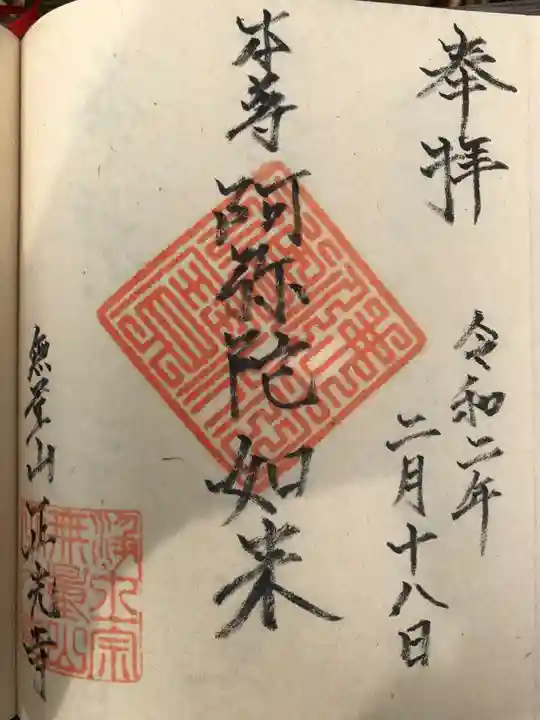 奉拝
令和二年
二月十八日
本尊
阿弥陀如来
無量山 正光寺
浄土宗
無量山